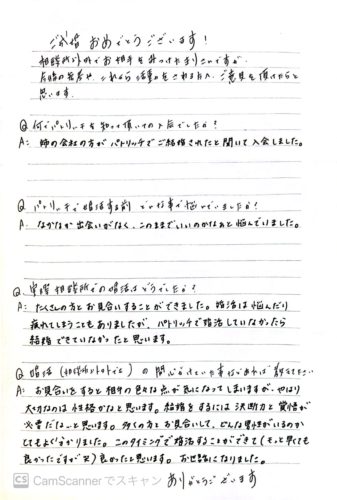 ご成婚 おめでとうございます!
相談所以外でお相手を見つけたようですが、
思います。
Q 何でパトリッチを知って頂いての入店でしたか?
A: 姉の会社の方がパトリッチでご結婚されたと聞いて入会しました。
Q パトリッチで婚活する前 どんな事で悩んでいましたか?
A. なかなか出会いがなく、このままでいいのかなぁと悩んでいました。
Q 実際 相談所での婚活はどうでしたか?
A: たくさんの方とお見合いすることができました。婚活は悩んだり
疲れてしまうこともありましたが、パトリッチで婚活していなかったら
結婚できていなかったと思います。
Q 婚活
A: お見合いをすると相手の色々な点が気になってしまいますが、やはり
大切なのは性格かなと思います。結婚をするには決断力と覚悟が
必要だなぁと思います。多くの方とお見合いして、どんな男性がいるのか
とてもよく分かりました。このタイミングで婚活することができて(もっと早くても
良かったですが 笑)良かったと思います。お世話になりました。
ありがとうございます
CS CamScannerでスキャン